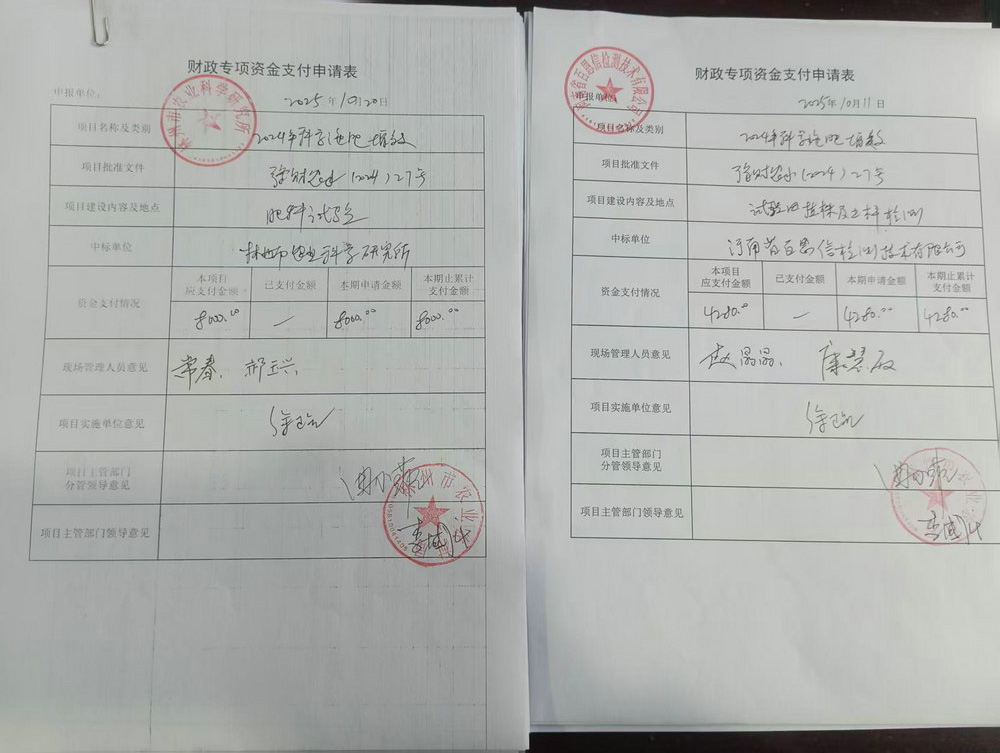 财政专项资金支付申请表
申报单位:
2025年10月20日
项目名称及类别
2024年科学施肥增效
项目批准文件
财农(2024)27号
项目建设内容及地点
肥料试验
中标单位
林州市农业科学研究所
资金支付情况
本项目应支付金额
已支付金额
本期申请金额
本期止累计支付金额
8000.00
—
8000.00
8000.00
现场管理人员意见
常春、郝玉兴
项目实施单位意见
项目主管部门
分管领导意见
项目主管部门领导意见
林州市农业科学研究所
财政专项资金支付申请表
申报单位:
2025年10月11日
项目名称及类别
2024年科学施肥增效
项目批准文件
财农(2024)27号
项目建设内容及地点
试验田植株及土样检测
中标单位
河南省百恩信检测技术有限公司
资金支付情况
本项目应支付金额
已支付金额
本期申请金额
本期止累计支付金额
4280.00
—
4280.00
4280.00
现场管理人员意见
赵晶晶、
项目实施单位意见
项目主管部门
分管领导意见
项目主管部门领导意见
河南省百恩信检测技术有限公司